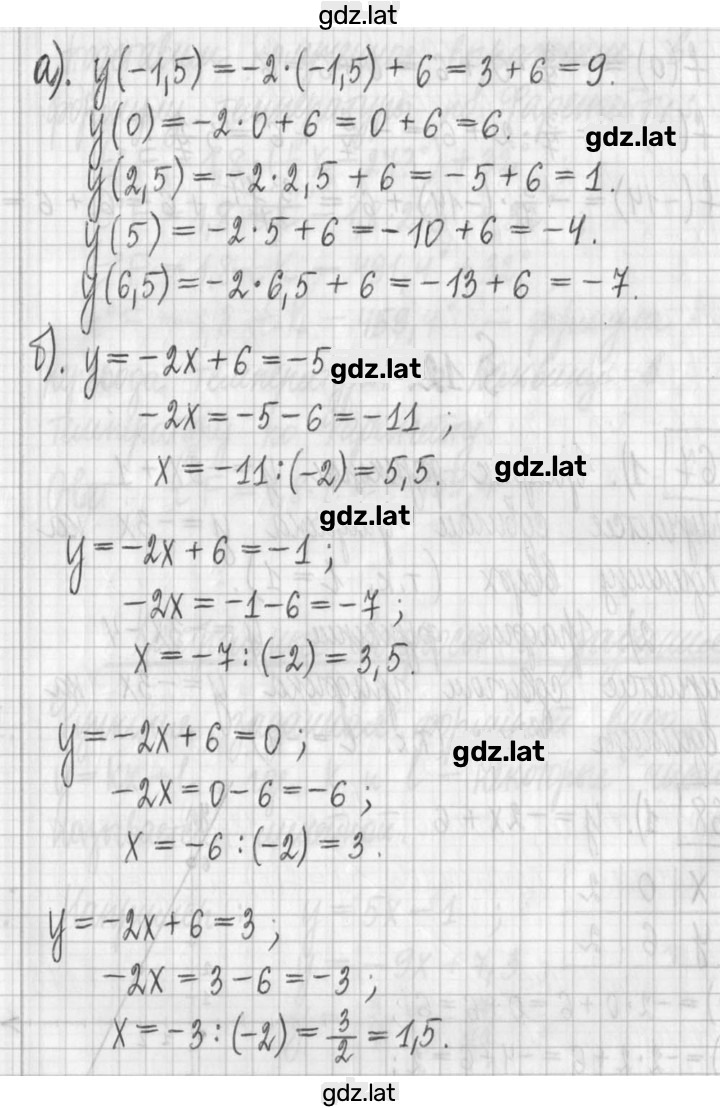 gdz.lat
а). y(-1,5) = -2·(-1,5) + 6 = 3 + 6 = 9.
y(0) = -2·0 + 6 = 0 + 6 = 6.
gdz.lat
y(2,5) = -2·2,5 + 6 = -5 + 6 = 1.
y(5) = -2·5 + 6 = -10 + 6 = -4.
y(6,5) = -2·6,5 + 6 = -13 + 6 = -7.
б). y = -2x + 6 = -5
gdz.lat
-2x = -5 - 6 = -11 ;
x = -11 : (-2) = 5,5.
gdz.lat
gdz.lat
y = -2x + 6 = -1 ;
-2x = -1 - 6 = -7 ;
x = -7 : (-2) = 3,5.
y = -2x + 6 = 0 ;
gdz.lat
-2x = 0 - 6 = -6 ;
x = -6 : (-2) = 3.
y = -2x + 6 = 3 ;
-2x = 3 - 6 = -3 ;
x = -3 : (-2) = 3/2 = 1,5.
gdz.lat